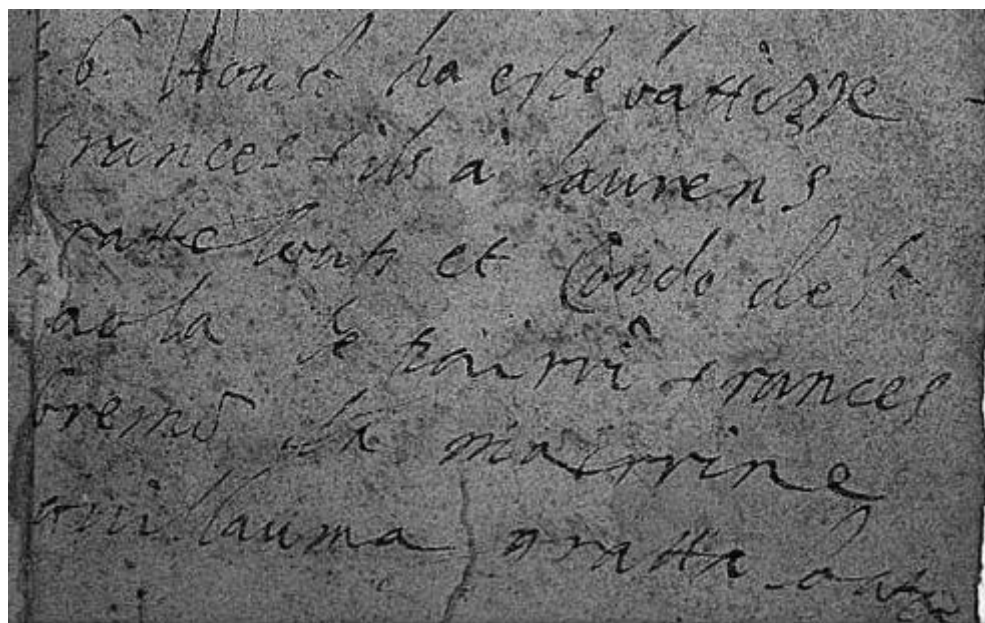 6 Aoust ha este battizze
frances fils à laurens
gratteloub et Condo de la
aola le pairrî frances
bremõ la mairrine
guillauma gratta